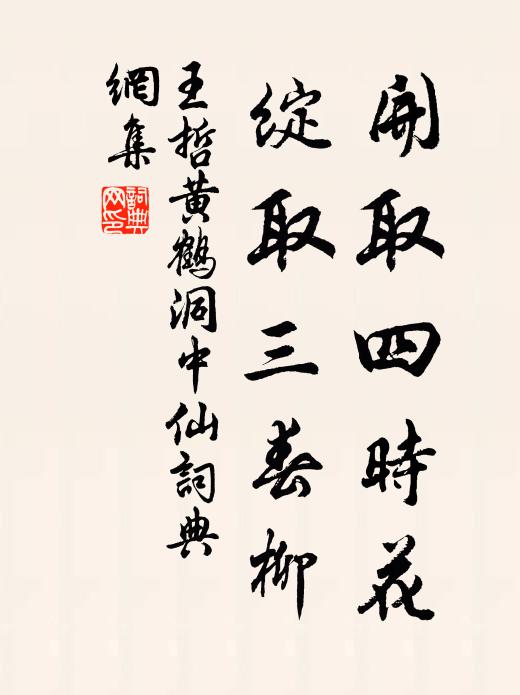 開取四時花
綻取三春柳
王哲黃鶴洞中仙詞典
網集
詞典
网印